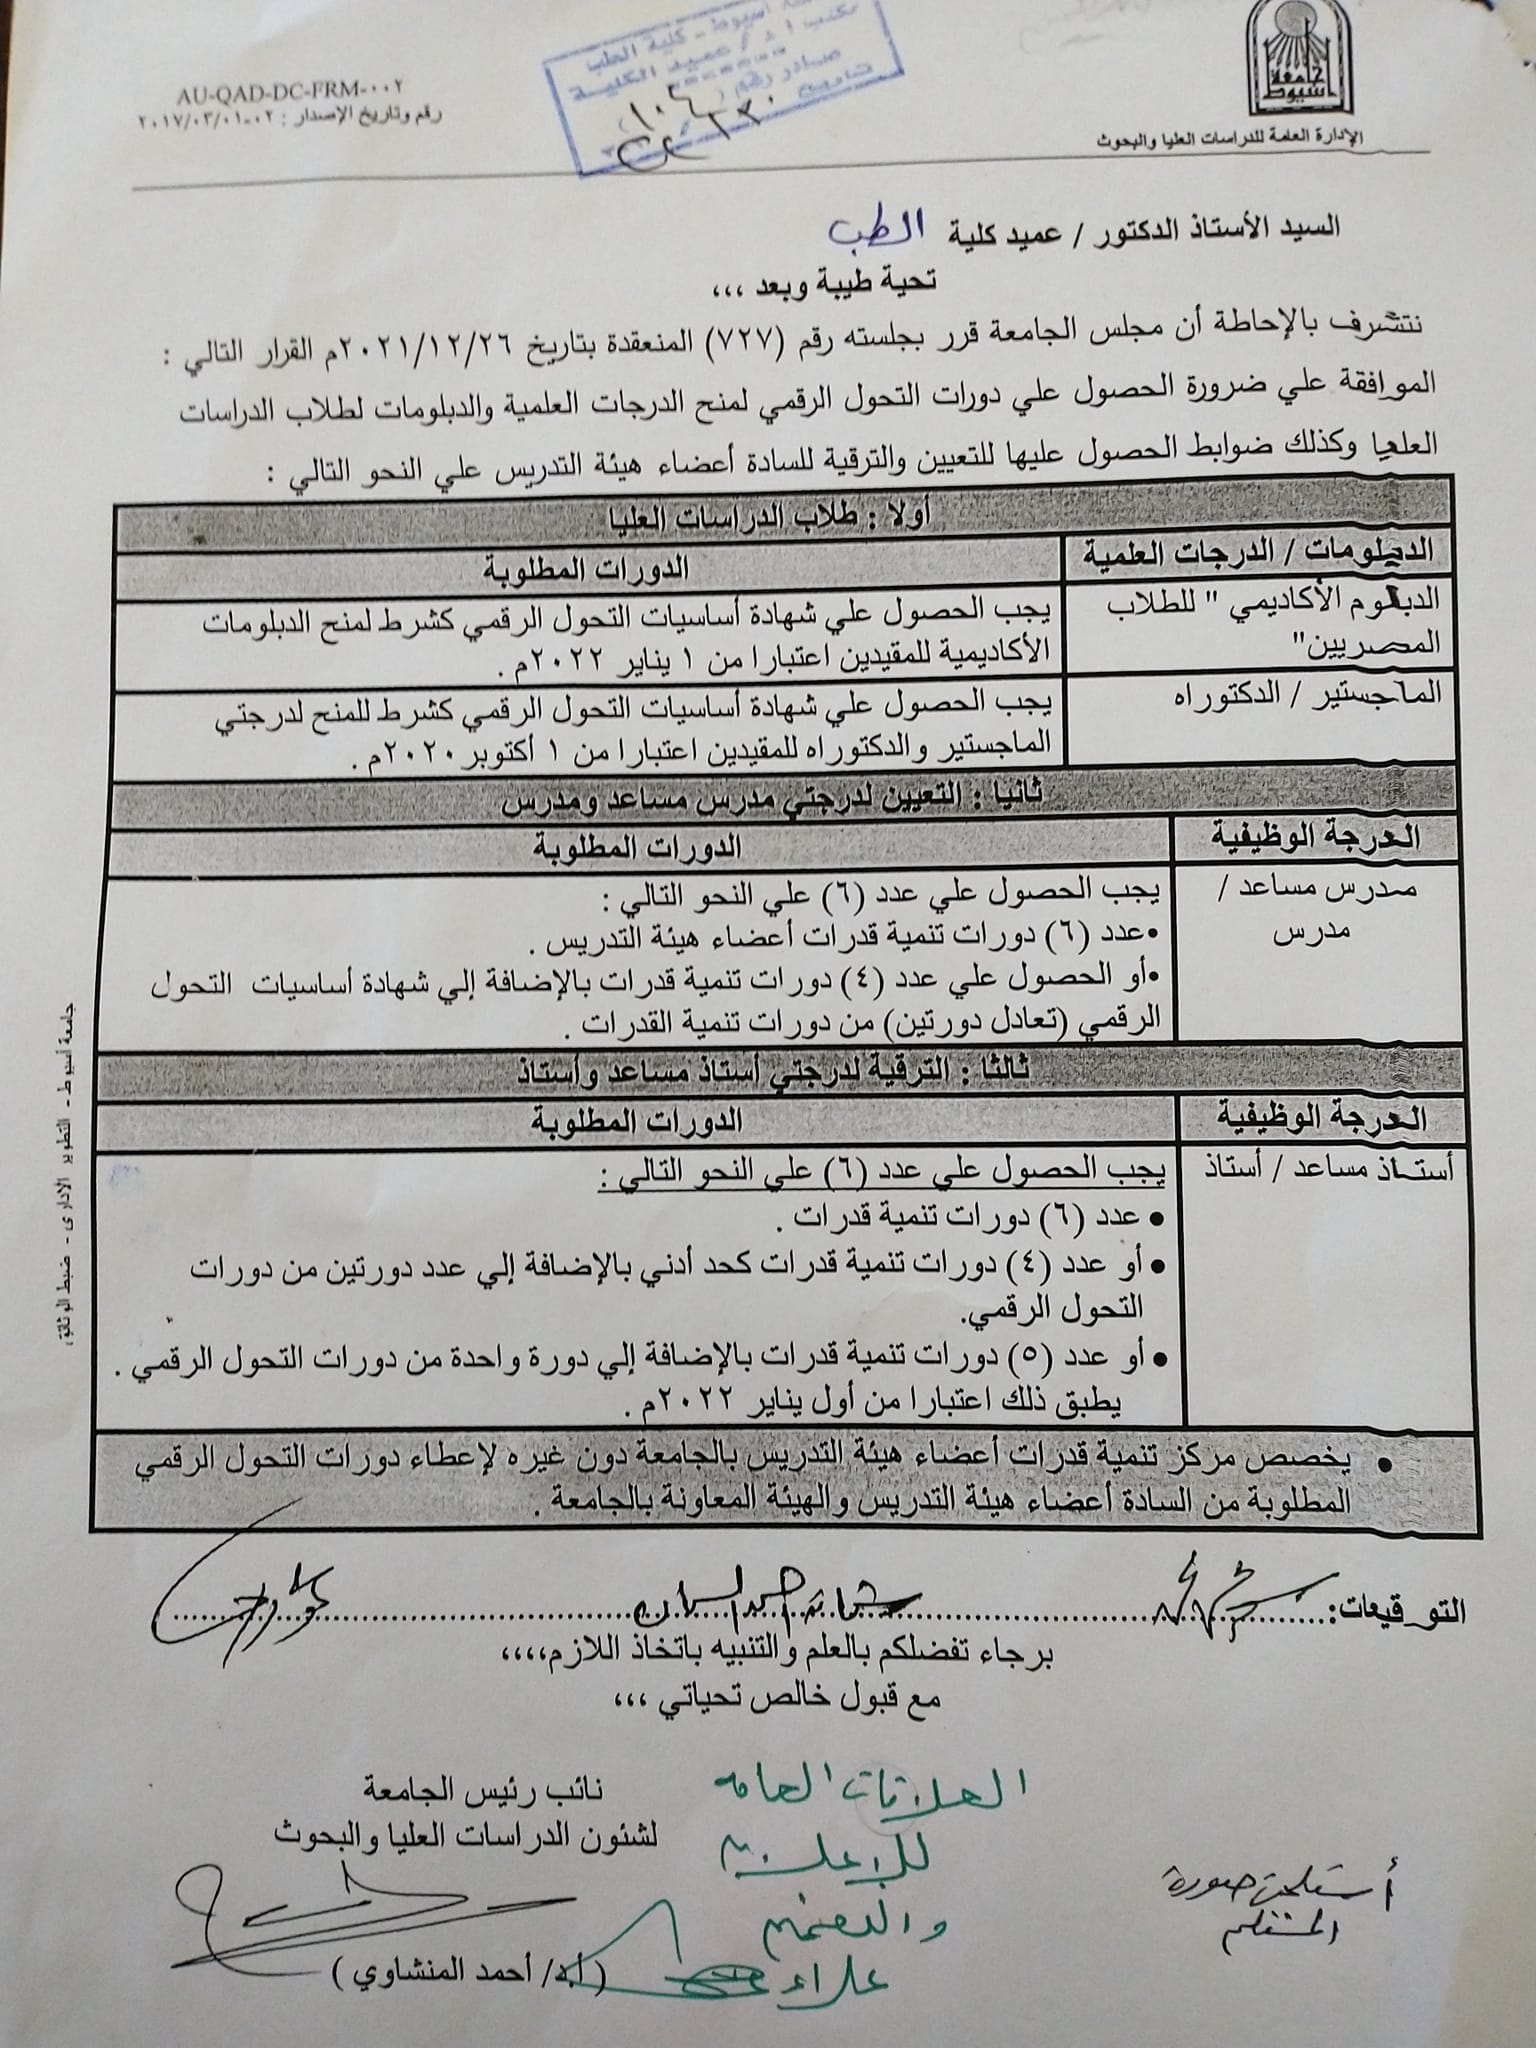 جامعة أسيوط
الإدارة العامة للدراسات العليا والبحوث
أسيوط - كلية الطب
مكتب أ.د / عميد الكلية
صادر رقم (١٠٤
AU-QAD-DC-FRM-٠٠٢
رقم وتاريخ الإصدار : ٠٢-٢٠١٧/٠٣/٠١
السيد الأستاذ الدكتور / عميد كلية الطب
تحية طيبة وبعد ،،،
نتشرف بالإحاطة أن مجلس الجامعة قرر بجلسته رقم (٧٢٧) المنعقدة بتاريخ ٢٠٢١/١٢/٢٦م القرار التالي :
الموافقة علي ضرورة الحصول علي دورات التحول الرقمي لمنح الدرجات العلمية والدبلومات لطلاب الدراسات
العليا وكذلك ضوابط الحصول عليها للتعيين والترقية للسادة أعضاء هيئة التدريس علي النحو التالي :
أولا : طلاب الدراسات العليا
الدبلومات / الدرجات العلمية الدورات المطلوبة
الدبلوم الأكاديمي " للطلاب يجب الحصول علي شهادة أساسيات التحول الرقمي كشرط لمنح الدبلومات
المصريين" الأكاديمية للمقيدين اعتبارا من ١ يناير ٢٠٢٢م .
الماجستير / الدكتوراه يجب الحصول علي شهادة أساسيات التحول الرقمي كشرط للمنح لدرجتي
الماجستير والدكتوراه للمقيدين اعتبارا من ١ أكتوبر ٢٠٢٠م .
ثانيا : التعيين لدرجتي مدرس مساعد ومدرس
الدرجة الوظيفية الدورات المطلوبة
مدرس مساعد / يجب الحصول علي عدد (٦) علي النحو التالي :
مدرس •عدد (٦) دورات تنمية قدرات أعضاء هيئة التدريس .
•أو الحصول علي عدد (٤) دورات تنمية قدرات بالإضافة إلي شهادة أساسيات التحول
الرقمي (تعادل دورتين) من دورات تنمية القدرات .
ثالثا : الترقية لدرجتي أستاذ مساعد وأستاذ
الدرجة الوظيفية الدورات المطلوبة
أستاذ مساعد / أستاذ يجب الحصول علي عدد (٦) علي النحو التالي :
• عدد (٦) دورات تنمية قدرات .
• أو عدد (٤) دورات تنمية قدرات كحد أدني بالإضافة إلي عدد دورتين من دورات
التحول الرقمي.
• أو عدد (٥) دورات تنمية قدرات بالإضافة إلي دورة واحدة من دورات التحول الرقمي .
يطبق ذلك اعتبارا من أول يناير ٢٠٢٢م .
• يخصص مركز تنمية قدرات أعضاء هيئة التدريس بالجامعة دون غيره لإعطاء دورات التحول الرقمي
المطلوبة من السادة أعضاء هيئة التدريس والهيئة المعاونة بالجامعة .
التوقيعات:
برجاء تفضلكم بالعلم والتنبيه باتخاذ اللازم،،،،
مع قبول خالص تحياتي ،،،
نائب رئيس الجامعة
لشئون الدراسات العليا والبحوث
(أ.د/ أحمد المنشاوي )
العلاقات العامه
علاء
أستلمت صورة
المستلم
جامعة أسيوط - التطوير الادارى - ضبط الوثائق